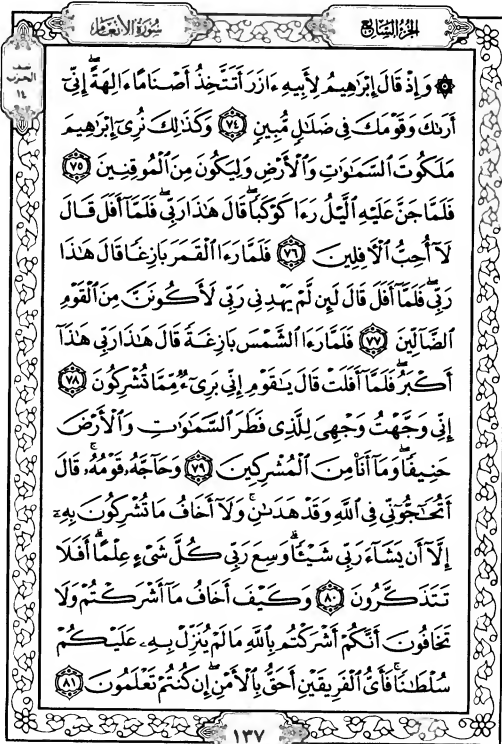 الجزء السابع
سورة الأنعام
نصف
الحزب
١٤
۞ وَإِذْ قَالَ إِبْرَٰهِيمُ لِأَبِيهِ ءَازَرَ أَتَتَّخِذُ أَصْنَامًا ءَالِهَةً ۖ إِنِّىٓ
أَرَىٰكَ وَقَوْمَكَ فِى ضَلَٰلٍ مُّبِينٍ ٧٤ وَكَذَٰلِكَ نُرِىٓ إِبْرَٰهِيمَ
مَلَكُوتَ ٱلسَّمَٰوَٰتِ وَٱلْأَرْضِ وَلِيَكُونَ مِنَ ٱلْمُوقِنِينَ ٧٥
فَلَمَّا جَنَّ عَلَيْهِ ٱلَّيْلُ رَءَا كَوْكَبًا ۖ قَالَ هَٰذَا رَبِّى ۖ فَلَمَّآ أَفَلَ قَالَ
لَآ أُحِبُّ ٱلْأٓفِلِينَ ٧٦ فَلَمَّا رَءَا ٱلْقَمَرَ بَازِغًا قَالَ هَٰذَا
رَبِّى ۖ فَلَمَّآ أَفَلَ قَالَ لَئِن لَّمْ يَهْدِنِى رَبِّى لَأَكُونَنَّ مِنَ ٱلْقَوْمِ
ٱلضَّآلِّينَ ٧٧ فَلَمَّا رَءَا ٱلشَّمْسَ بَازِغَةً قَالَ هَٰذَا رَبِّى هَٰذَآ
أَكْبَرُ ۖ فَلَمَّآ أَفَلَتْ قَالَ يَٰقَوْمِ إِنِّى بَرِىٓءٌ مِّمَّا تُشْرِكُونَ ٧٨
إِنِّى وَجَّهْتُ وَجْهِىَ لِلَّذِى فَطَرَ ٱلسَّمَٰوَٰتِ وَٱلْأَرْضَ
حَنِيفًا ۖ وَمَآ أَنَا۠ مِنَ ٱلْمُشْرِكِينَ ٧٩ وَحَآجَّهُۥ قَوْمُهُۥ ۚ قَالَ
أَتُحَٰٓجُّوٓنِّى فِى ٱللَّهِ وَقَدْ هَدَىٰنِ ۚ وَلَآ أَخَافُ مَا تُشْرِكُونَ بِهِۦٓ
إِلَّآ أَن يَشَآءَ رَبِّى شَيْـًٔا ۗ وَسِعَ رَبِّى كُلَّ شَىْءٍ عِلْمًا ۗ أَفَلَا
تَتَذَكَّرُونَ ٨٠ وَكَيْفَ أَخَافُ مَآ أَشْرَكْتُمْ وَلَا
تَخَافُونَ أَنَّكُمْ أَشْرَكْتُم بِٱللَّهِ مَا لَمْ يُنَزِّلْ بِهِۦ عَلَيْكُمْ
سُلْطَٰنًا ۚ فَأَىُّ ٱلْفَرِيقَيْنِ أَحَقُّ بِٱلْأَمْنِ ۖ إِن كُنتُمْ تَعْلَمُونَ ٨١
١٣٧